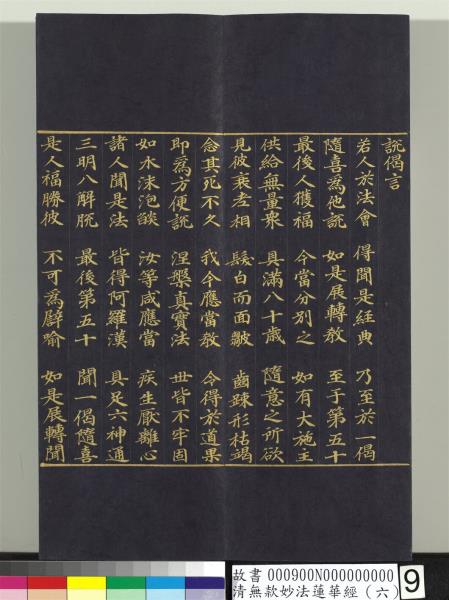 說偈言
若人於法會　得聞是經典　乃至於一偈
隨喜為他說　如是展轉教　至于第五十
最後人獲福　今當分別之　如有大施主
供給無量衆　具滿八十歲　隨意之所欲
見彼衰老相　髮白而面皺　齒踈形枯竭
念其死不久　我今應當教　令得於道果
即為方便說　涅槃真實法　世皆不牢固
如水沫泡燄　汝等咸應當　疾生厭離心
諸人聞是法　皆得阿羅漢　具足六神通
三明八解脫　最後第五十　聞一偈隨喜
是人福勝彼　不可為譬喻　如是展轉聞
故書 000900N000000000
清無款妙法蓮華經（六）
9